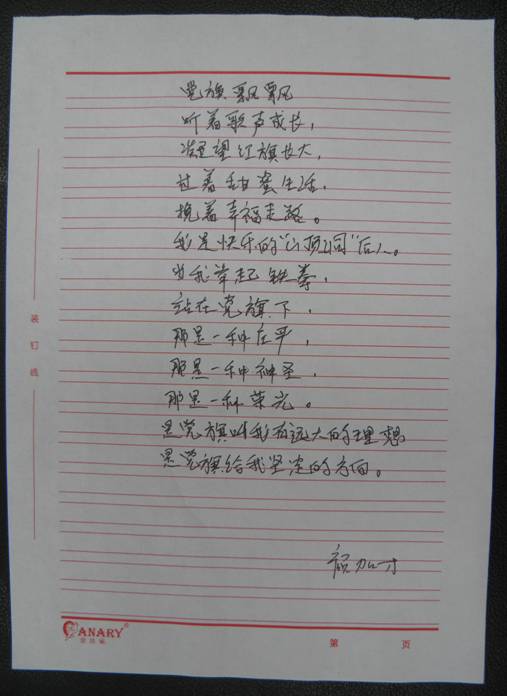 党旗飘飘
听着歌声成长，
凝望红旗长大，
过着甜蜜生活，
挽着幸福走路。
我是快乐的“山顶洞”后人。
当我举起铁拳，
站在党旗下，
那是一种庄严，
那是一种神圣，
那是一种荣光。
是党旗叫我有远大的理想
是党旗给我坚定的方向。
加才
装订线
CANARY®
第 页